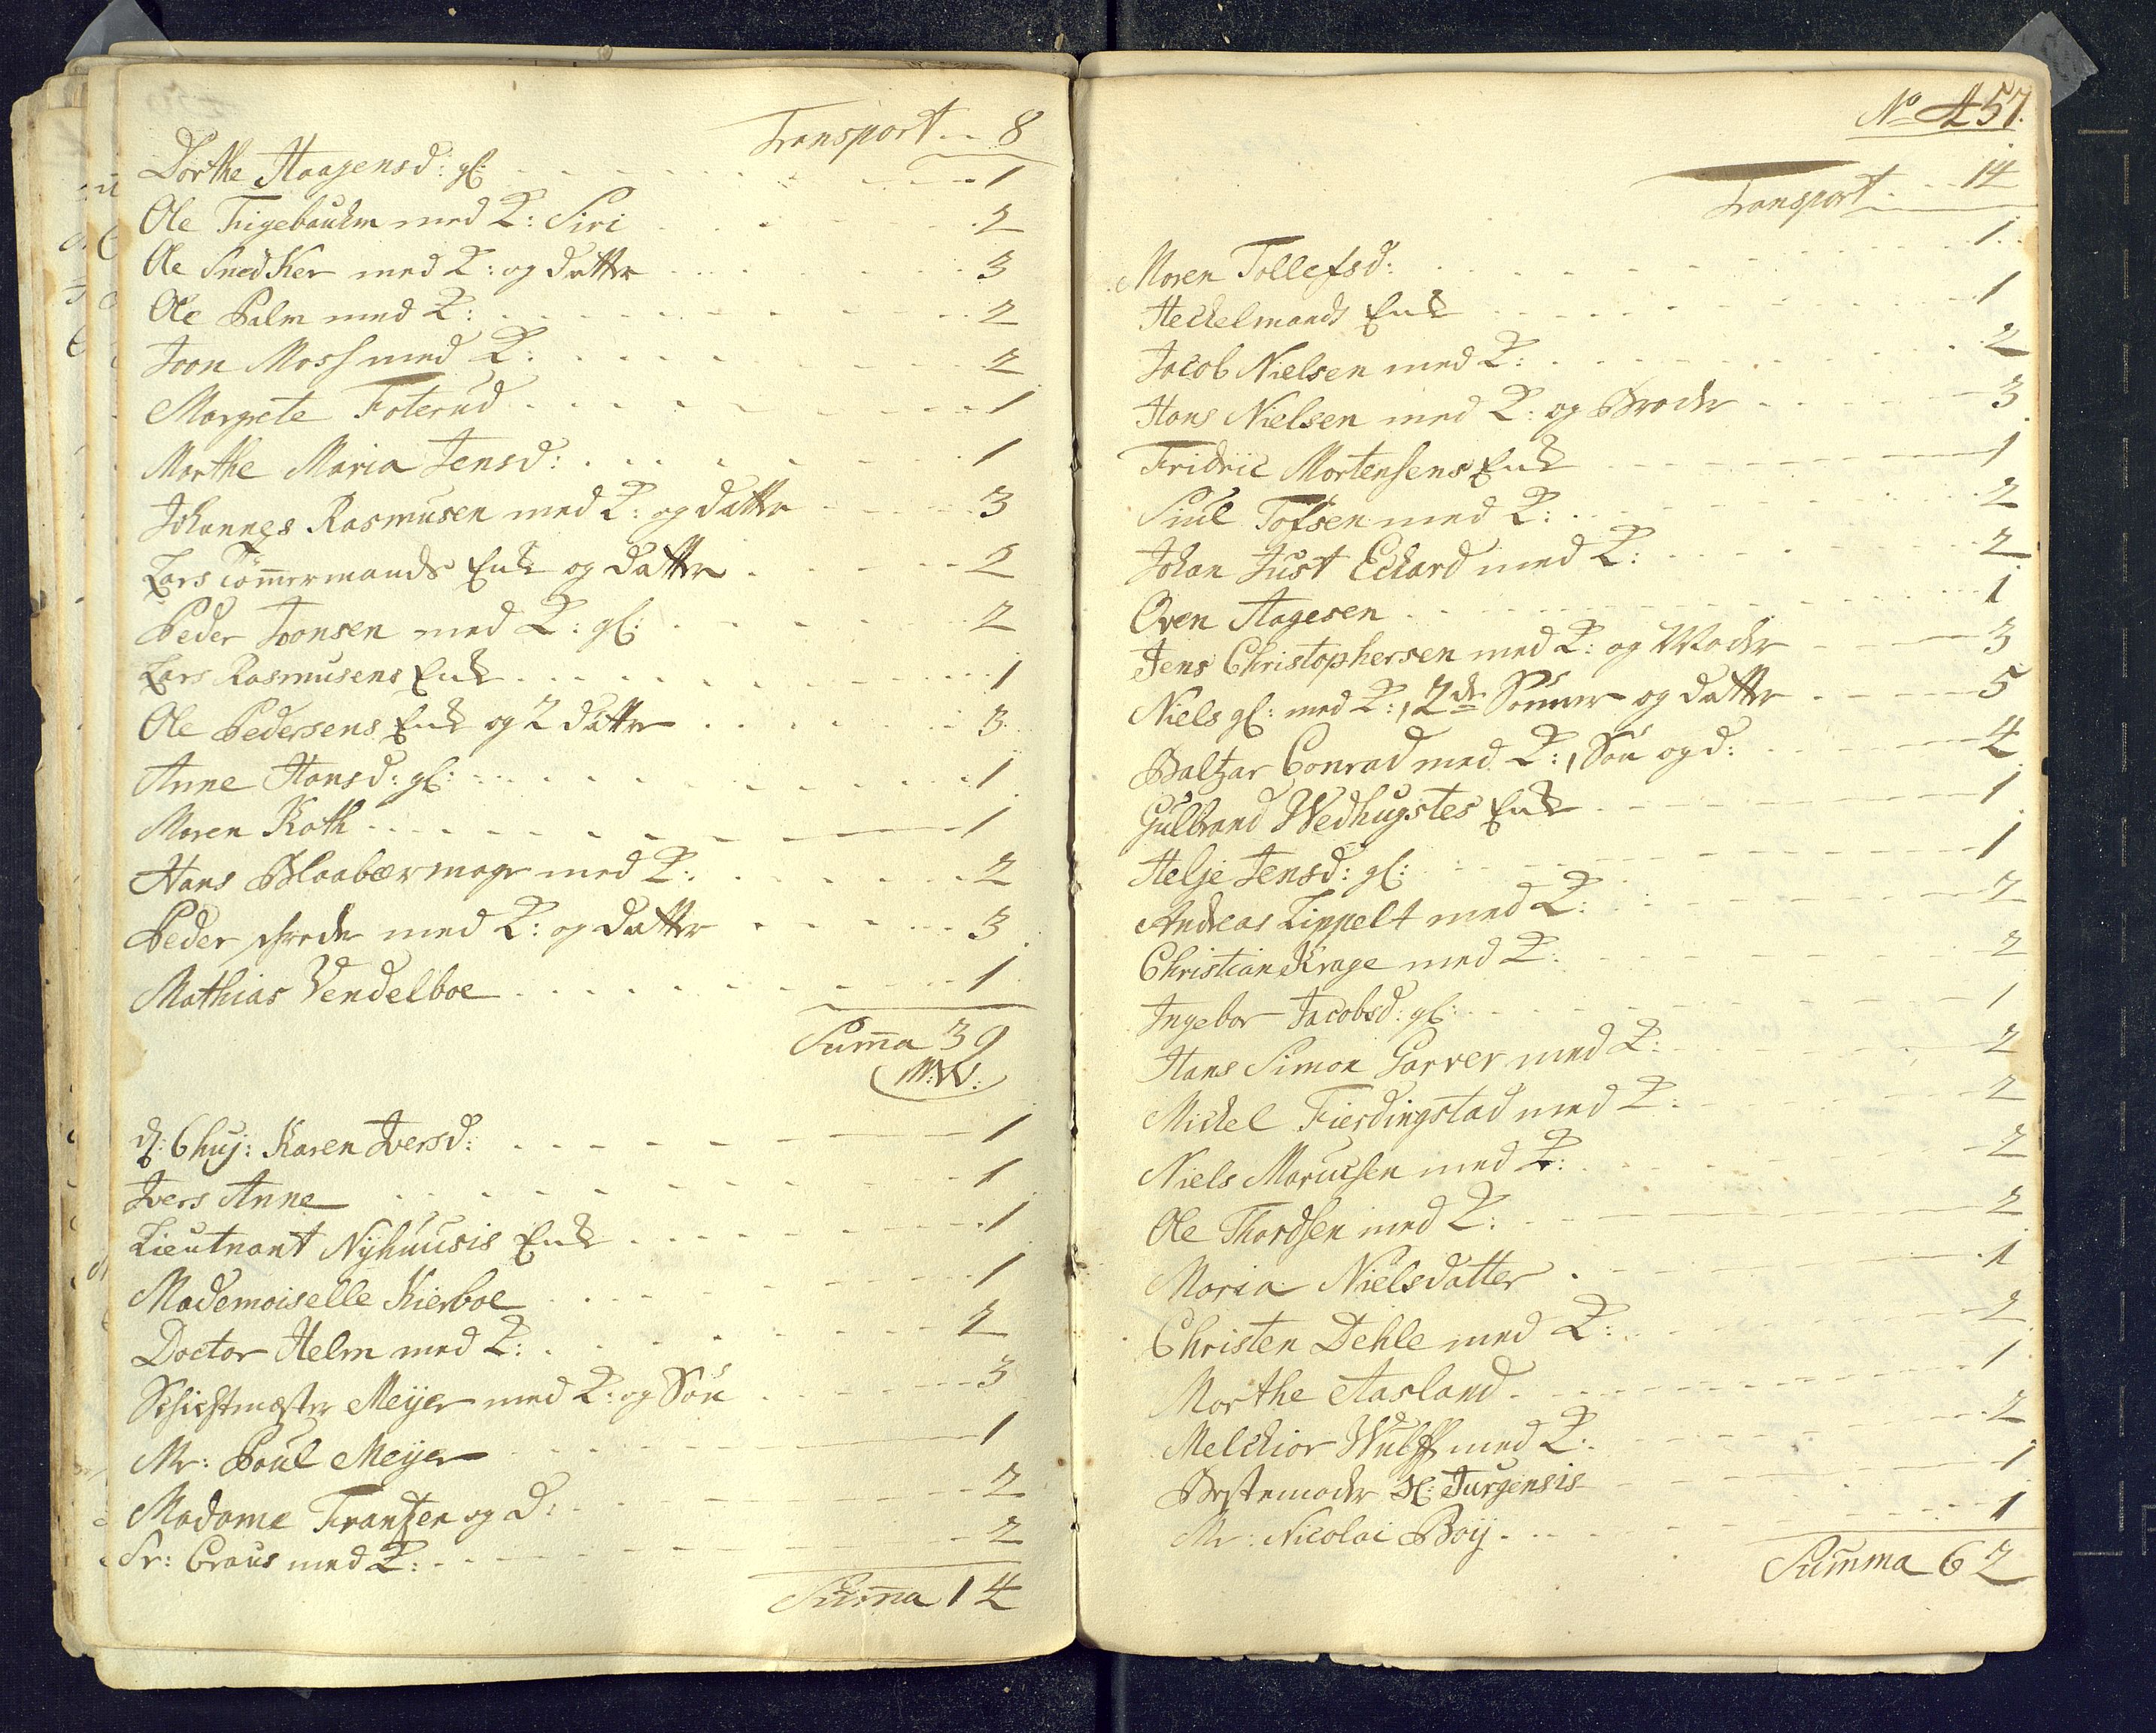 Transport 8
Dorthe Haagensd: gl: 1
Ole Trigebauchm med K: Siri 2
Ole Snedker med K: og datter 3
Ole Palm med K: 2
Joon Moss med K: 2
Margrete Foterud 1
Marthe Maria Jensd: 1
Johannes Rasmusen med K: og datter 3
Lars Tömmermands Enke og datter 2
Peder Joonsen med K: gl: 2
Lars Rasmusens Enke 1
Ole Pedersens Enke og 2 datter 3
Anne Hansd: gl: 1
Maren Koth 1
Hans Blaabærmayr med K: 2
Peder med K: og datter 3
Mathias Vendelboe 1
Suma 39
M:W:
d: 6 huj: Karen Iversd: 1
Ivers Anne 1
Lieutnant Nyhuusis Enke 1
Mademoiselle Kierboe 1
Doctor Helm med K: 2
Schichtmester Meyer med K: og Sön 3
Mr: Poul Meyer 1
Madame Frantzen og D: 2
Sr: Craus med K: 2
Suma 14
No 457.
Transport 14
Maren Tollefsd: 1
Heckelmands Enke 1
Jacob Nielsen med K: 2
Hans Nielsen med K: og Broder 3
Fridric Mortensens Enke 1
Siul Tofsen med K: 2
Johan Just Eckard med K: 2
Oven Aagesen 1
Jens Christophersen med K: og Moder 3
Niels gl: med K:, 2de Sönner og datter 5
Baltzar Conrad med K:, Sön og d: 4
Gulbrand Wedhugstes Enke 1
Helje Jensd: gl: 1
Andreas Lippelt med K: 2
Christian Krage med K: 2
Ingebor Jacobsd: gl: 1
Hans Simon Garver med K: 2
Mickel Fierdingstad med K: 2
Niels Marucsen med K: 2
Ole Thordsen med K: 2
Maria Nielsdatter 1
Christen Dehle med K: 2
Marthe Aasland 1
Melchior Wulff med K: 2
Bestemoder Sl: Jurgensis 1
Mr: Nicolai Boy 1
Summa 62